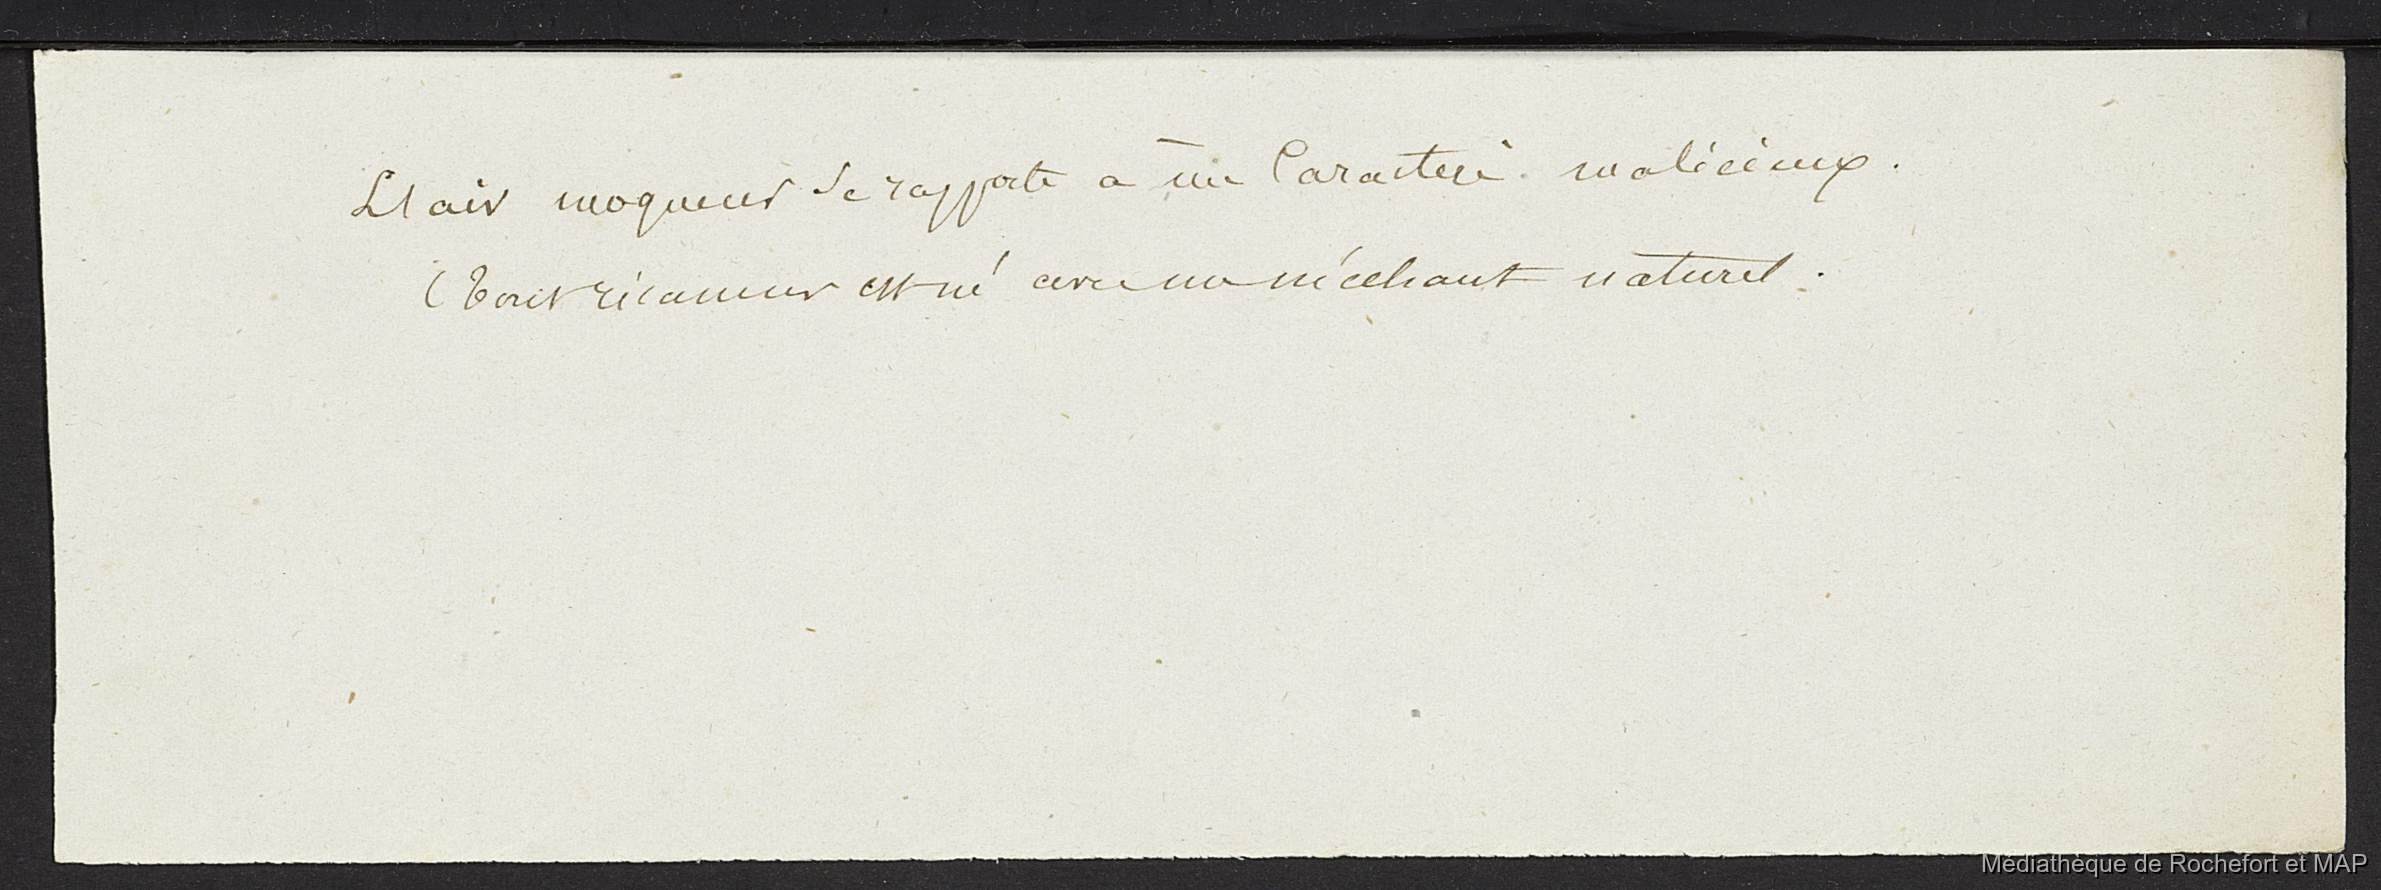 L'air moqueur se rapporte a un Caractere malicieux.
(Tout ricaneur est né avec un méchant naturel.
Médiathèque de Rochefort et MAP